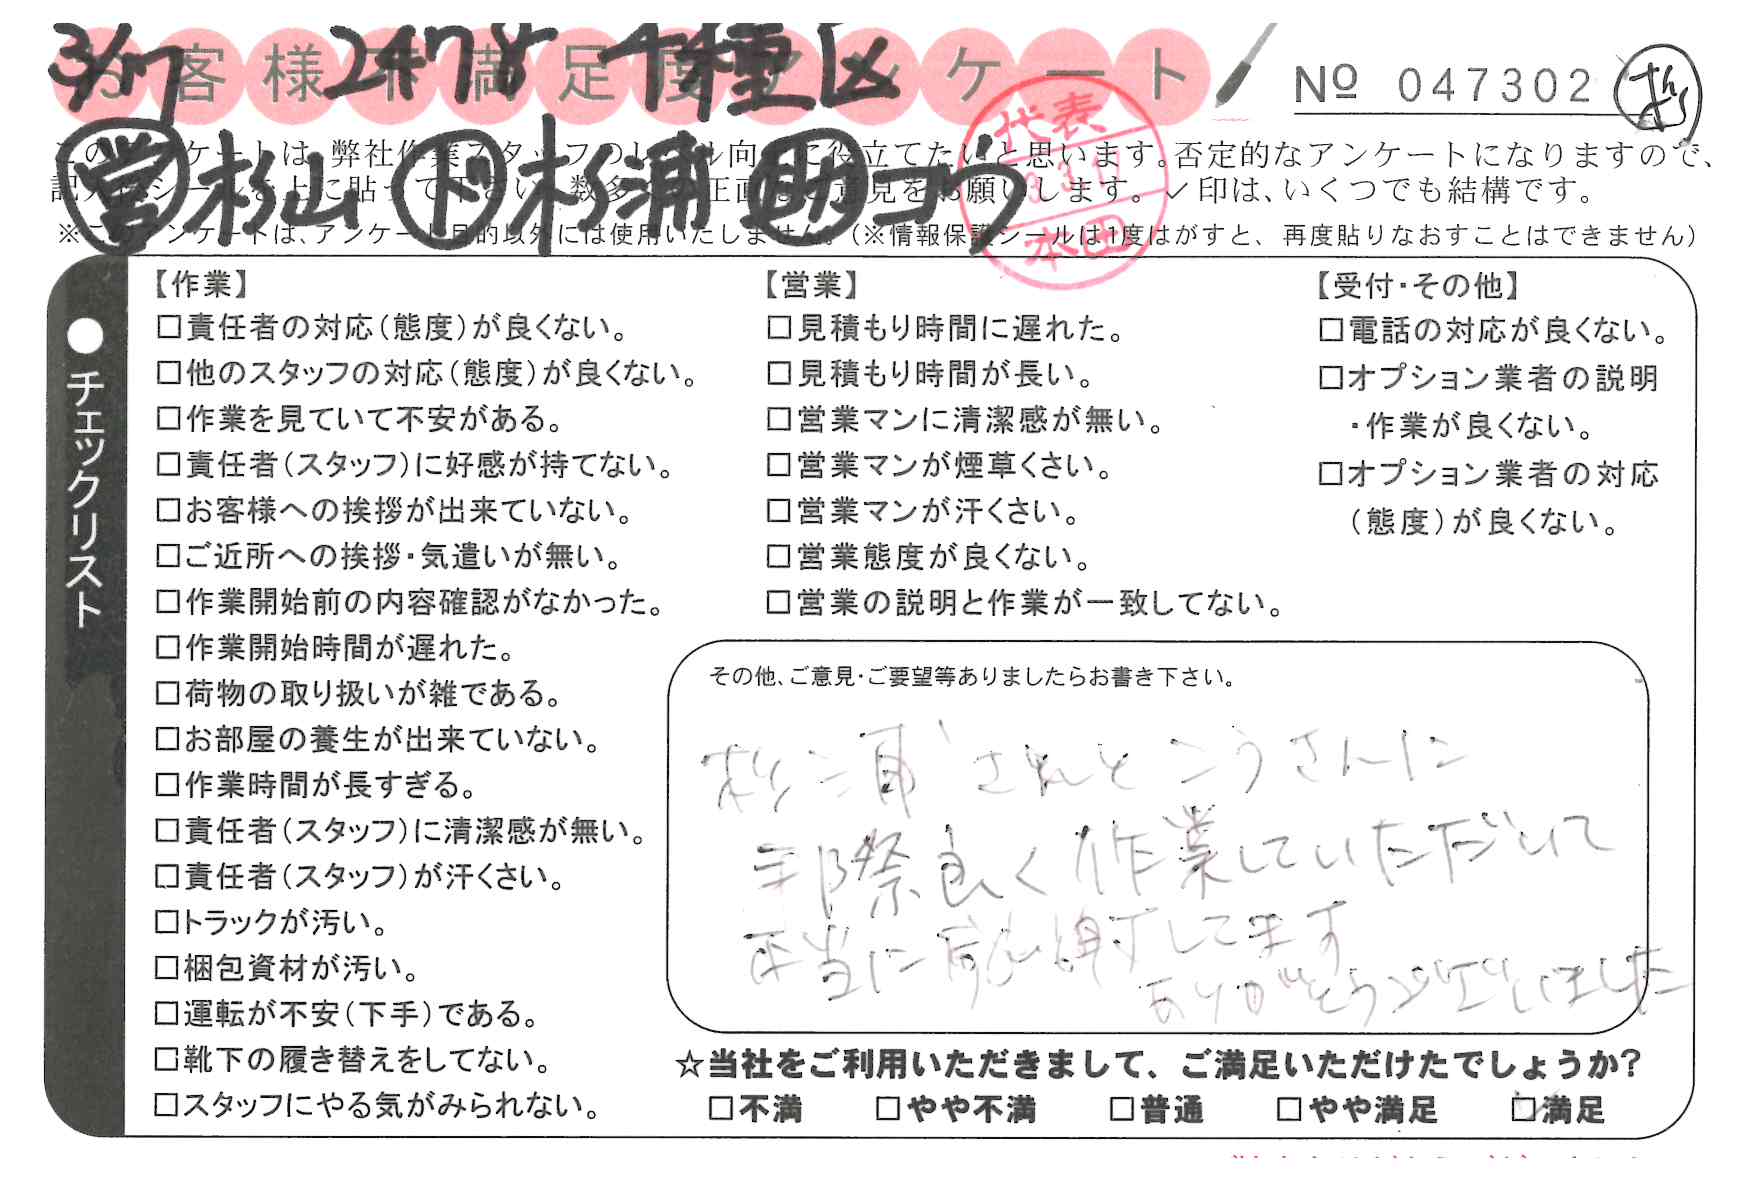 3/17 2478 千種区
お客様不満足度アンケート
Nº 047302
営 杉山 下 杉浦 助 コウ
代表
3.3.1
本田
このアンケートは、弊社作業スタッフのレベル向上に役立てたいと思います。否定的なアンケートになりますので、
記入後シールを上に貼って下さい。数多くの正直なご意見をお願いします。✓印は、いくつでも結構です。
※このアンケートは、アンケート目的以外には使用いたしません。(※情報保護シールは1度はがすと、再度貼りなおすことはできません)
●チェックリスト
【作業】
□責任者の対応(態度)が良くない。
□他のスタッフの対応(態度)が良くない。
□作業を見ていて不安がある。
□責任者(スタッフ)に好感が持てない。
□お客様への挨拶が出来ていない。
□ご近所への挨拶・気遣いが無い。
□作業開始前の内容確認がなかった。
□作業開始時間が遅れた。
□荷物の取り扱いが雑である。
□お部屋の養生が出来ていない。
□作業時間が長すぎる。
□責任者(スタッフ)に清潔感が無い。
□責任者(スタッフ)が汗くさい。
□トラックが汚い。
□梱包資材が汚い。
□運転が不安(下手)である。
□靴下の履き替えをしてない。
□スタッフにやる気がみられない。
【営業】
□見積もり時間に遅れた。
□見積もり時間が長い。
□営業マンに清潔感が無い。
□営業マンが煙草くさい。
□営業マンが汗くさい。
□営業態度が良くない。
□営業の説明と作業が一致してない。
【受付・その他】
□電話の対応が良くない。
□オプション業者の説明
・作業が良くない。
□オプション業者の対応
(態度)が良くない。
その他、ご意見・ご要望等ありましたらお書き下さい。
杉浦さんとこうさんに
手際良く作業していただいて
本当に感謝してます
ありがとうございました
☆当社をご利用いただきまして、ご満足いただけたでしょうか?
□不満 □やや不満 □普通 □やや満足 ☑満足